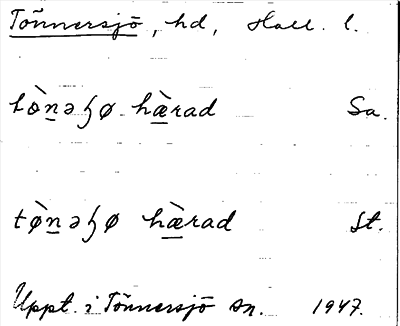 Tönnersjö, hd, Hall. l.
tò̱nəɧø hæ̱̀rad Sa.
tø̱̀nəɧø hæ̱̀rad St.
Uppt. i Tönnersjö sn. 1947.